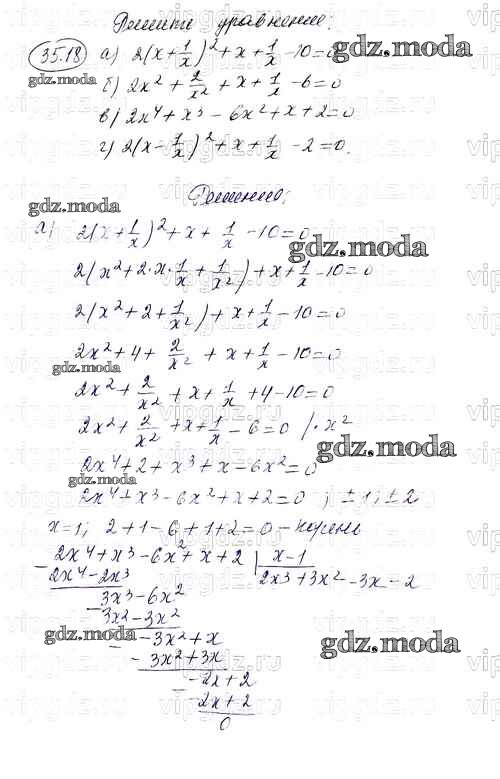 Решите уравнение:
35.18 а) 2(x + 1/x)² + x + 1/x - 10 = 0
б) 2x² + 2/x² + x + 1/x - 6 = 0
в) 2x⁴ + x³ - 6x² + x + 2 = 0
г) 2(x - 1/x)² + x + 1/x - 2 = 0.
Решение:
а) 2(x + 1/x)² + x + 1/x - 10 = 0
2(x² + 2·x·1/x + 1/x²) + x + 1/x - 10 = 0
2(x² + 2 + 1/x²) + x + 1/x - 10 = 0
2x² + 4 + 2/x² + x + 1/x - 10 = 0
2x² + 2/x² + x + 1/x + 4 - 10 = 0
2x² + 2/x² + x + 1/x - 6 = 0 /·x²
2x⁴ + 2 + x³ + x - 6x² = 0
2x⁴ + x³ - 6x² + x + 2 = 0 ; ±1; ±2
x = 1; 2 + 1 - 6 + 1 + 2 = 0 - корень
2x⁴ + x³ - 6x² + x + 2 | x - 1
2x⁴ - 2x³ 2x³ + 3x² - 3x - 2
3x³ - 6x²
3x2 - 3x²
-3x² + x
- 3x² + 3x
-2x + 2
-2x + 2
0
gdz.moda
vipgdz.ru